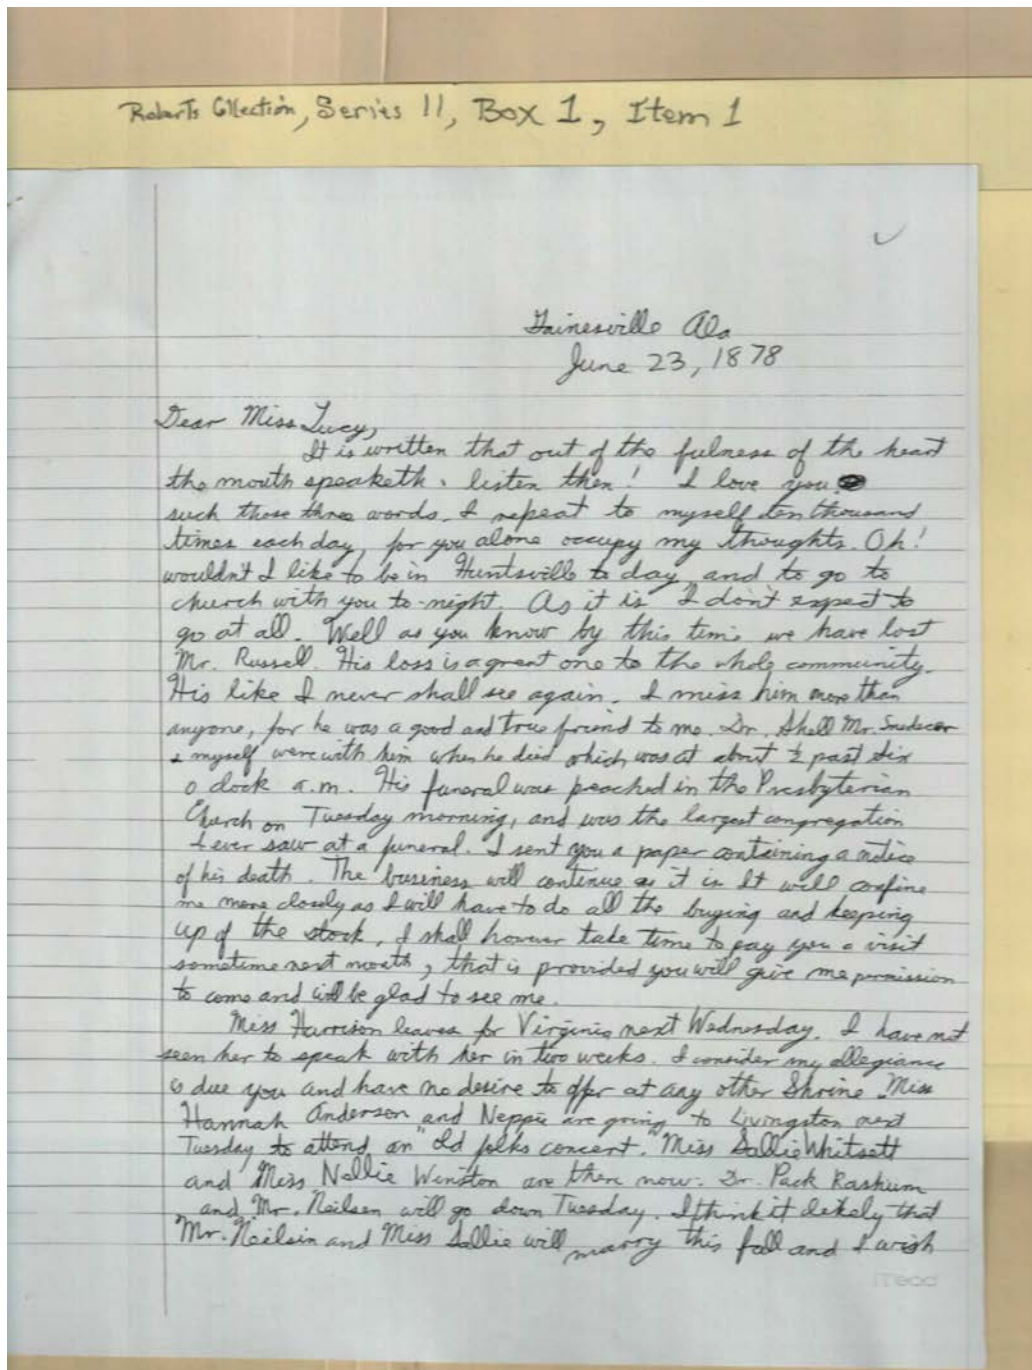 Roberts Collection, Series II, Box 1, Item 1
Gainesville Ala
June 23, 1878
Dear Miss Lucy,
It is written that out of the fulness of the heart
the mouth speaketh. listen then! I love you
such those three words. I repeat to myself ten thousand
times each day, for you alone occupy my thoughts. Oh!
wouldn't I like to be in Huntsville to day, and to go to
church with you to-night. As it is I don't expect to
go at all. Well as you know by this time we have lost
Mr. Russell. His loss is a great one to the whole community.
His like I never shall see again. I miss him more than
anyone, for he was a good and true friend to me. Dr. Shell Mr. Snedecor
& myself were with him when he died which was at about ½ past six
o clock a.m. His funeral was peached in the Presbyterian
Church on Tuesday morning, and was the largest congregation
I ever saw at a funeral. I sent you a paper containing a notice
of his death. The business will continue as it is It will confine
me more closely as I will have to do all the buying and keeping
up of the stock, I shall however take time to pay you a visit
sometime next month, that is provided you will give me permission
to come and will be glad to see me.
Miss Harrison leaves for Virginia next Wednesday. I have not
seen her to speak with her in two weeks. I consider my allegiance
is due you and have no desire to offer at any other Shrine. Miss
Hannah Anderson and Neppie are going to Livingston next
Tuesday to attend an "old folks concert." Miss Sallie Whitsett
and Miss Nellie Winston are there now. Dr. Pack
and Mr. Neilsen will go down Tuesday. I think it likely that
Mr. Neilsin and Miss Sallie will marry this fall and I wish